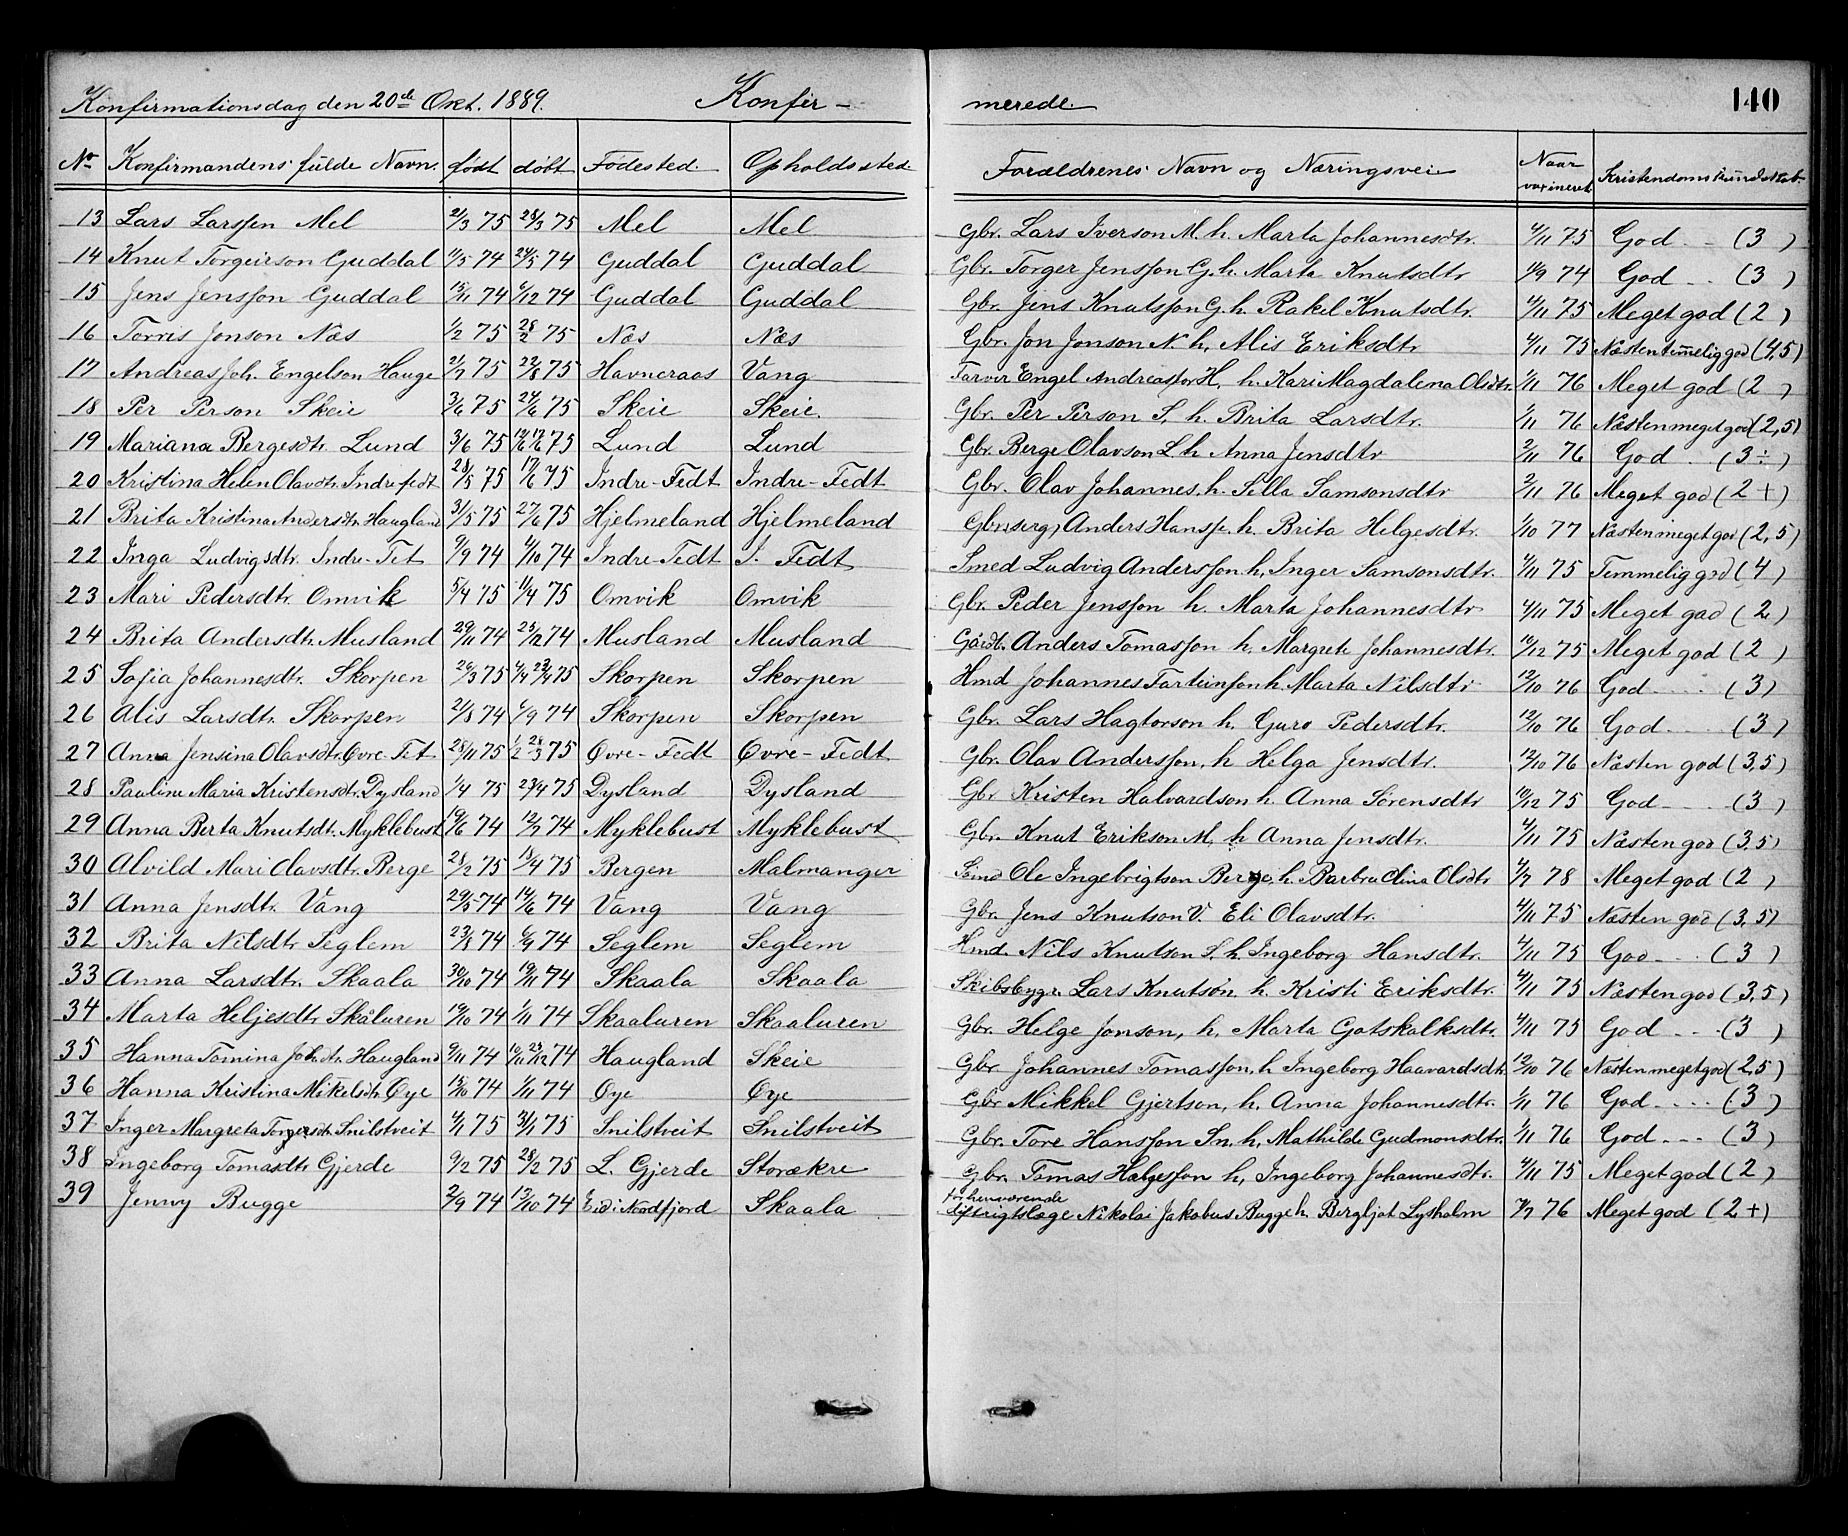 Konfirmationsdag den 20de Okt. 1889. Konfir- merede. 140
No Konfirmandens fulde Navn. født døbt Fødested. Opholdssted. Forældrenes Navn og Næringsvei Naar vaxineret Kristendomskundskab.
13 Lars Larssen Mel 21/3 75 28/3 75 Mel Mel Gbr. Lars Iverson M. h. Marta Johannesdtr. 4/11 75 God - (3)
14 Knut Torgeirson Guddal 11/5 74 24/5 74 Guddal Guddal Gbr. Torger Jensson G. h. Marta Knutsdtr 11/9 74 God - - (3)
15 Jens Jensson Guddal 15/11 74 6/12 74 Guddal Guddal Gbr. Jens Knutsson G. h. Rakel Knutsdtr. 4/11 75 Meget god (2)
16 Torris Jonson Næs 1/2 75 28/2 75 Næs Næs Gbr. Jon Jonson N. h. Alis Eriksdtr 4/11 75 Næsten temmelig god (4,5)
17 Andreas Joh. Engelson Hauge 21/7 75 22/8 75 Havneraas Vang Farver Engel Andreasson H. h. Kari Magdalena Olsdtr. 1/11 76 Meget god (2)
18 Per Person Skeie 3/6 75 27/6 75 Skeie Skeie. Gbr. Per Person S. h. Brita Larsdtr. 1/11 76 Næsten meget god (2,5)
19 Mariana Bergesdtr. Lund 3/6 75 75 Lund Lund Gbr. Berge Olavson L h. Anna Jensdtr 2/11 76 God . (3÷)
20 Kristina Helen Olavsdtr. Indrefedt 28/5 75 17/6 75 Indre-Fedt Indre-Fedt Gbr. Olav Johannes. h. Silla Samsonsdtr 2/11 76 Meget god (2+)
21 Brita Kristina Andersdtr Haugland 31/5 75 27/6 75 Hjelmeland Hjelmeland Anders Hanss. h. Brita Helgesdtr. 1/10 77 Næsten meget god (2,5)
22 Inga Ludvigsdtr. Indre-Fet 9/9 74 4/10 74 Indre-Fedt I. Fedt Smed Ludvig Andersson h. Inger Samsonsdtr. 4/11 75 Temmelig god (4)
23 Mari Pedersdtr. Omvik 5/4 75 11/4 75 Omvik Omvik Gbr. Peder Jensson h. Marta Johannesdtr 4/11 75 Meget god (2)
24 Brita Andersdtr. Musland 29/11 74 25/12 74 Musland Musland Gårdbr. Anders Tomasson h. Margrete Johannesdtr. 10/12 75 Meget god (2)
25 Sofia Johannesdtr. Skorpen 26/3 75 4/4 23/4 75 Skorpen Skorpen Hmd Johannes Farteinson h. Marta Nilsdtr 12/10 76 God - - - (3)
26 Alis Larsdtr. Skorpen 21/8 74 6/9 74 Skorpen Skorpen Gbr. Lars Hagtorson h. Guro Pedersdtr. 12/10 76 God - - - (3)
27 Anna Jensina Olavsdtr. Øvre-Fet 25/11 75 1/2 28/3 75 Øvre-Fedt Øvre-Fedt Gbr. Olav Andersson, h Helga Jensdtr. 12/10 76 Næsten god (3,5)
28 Pauline Maria Kristensdtr. Dysland 1/4 75 23/4 75 Dysland Dysland Gbr Kristen Halvardson h. Anna Sørensdtr 10/12 75 God - - - (3)
29 Anna Berta Knutsdtr. Myklebust 19/6 74 12/7 74 Myklebust Myklebust Gbr. Knut Erikson M. h Anna Jensdtr. 4/11 75 Næsten god (3,5)
30 Alvild Mari Olavsdtr. Berge 28/2 75 18/4 75 Bergen Malmanger Smed Ole Ingebrigtson Berge, h. Barbra Elina Olsdtr 4/7 78 Meget god (2)
31 Anna Jensdtr. Vang 29/5 74 14/6 74 Vang Vang Gbr. Jens Knutson V. Eli Olavsdtr. 4/11 75 Næsten god (3,5)
32 Brita Nilsdtr Seglem 23/8 74 6/9 74 Seglem Seglem Hmd. Nils Knutson S. h. Ingeborg Hansdtr. 4/11 75 God - - . (3)
33 Anna Larsdtr. Skaala 30/10 74 19/11 74 Skaala Skaala Skibsbygr. Lars Knutson. h. Kristi Eriksdtr. 4/11 75 Næsten god (3,5)
34 Marta Heljesdtr Skåluren 19/10 74 1/11 74 Skaaluren Skaaluren Gbr. Helge Jonson, h. Marta Gotskalksdtr. 4/11 75 God - - - (3)
35 Hanna Tomina Johsdtr. Haugland 9/11 74 10/11 23/12 74 Haugland Skeie Gbr. Johannes Tomasson, h Ingeborg Haavardsdtr. 12/10 76 Næsten meget god (2,5)
36 Hanna Kristina Mikelsdtr Øye 15/10 74 1/11 74 Øye Øye Gbr Mikkel Gjertson, h. Anna Johannesdtr. 1/11 76 God - - - (3)
37 Inger Margreta Snilstveit 4/1 75 31/1 75 Snilstveit Snilstveit Gbr. Tore Hansson Sn. h. Mathilde Gudmonsdtr. 1/11 76 God - - - (3)
38 Ingeborg Tomasdtr Gjerde 9/2 75 28/2 75 L. Gjerde Storækre Gbr. Tomas Helgesson h, Ingeborg Johannesdtr. 4/11 75 Meget god (2)
39 Jenny Bugge 2/9 74 13/10 74 Eid i Nordfjord Skaala forhenværende Distrigtslæge Nikolai Jakobus Bugge h. Bergljot Lysholm 7/7 76 Meget god (2+)